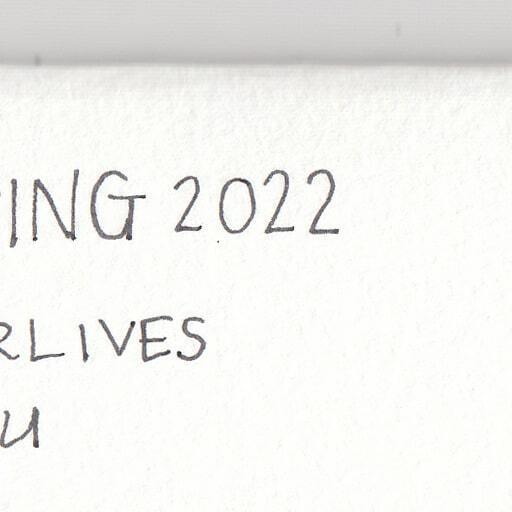 ING 2022
RLIVES
U